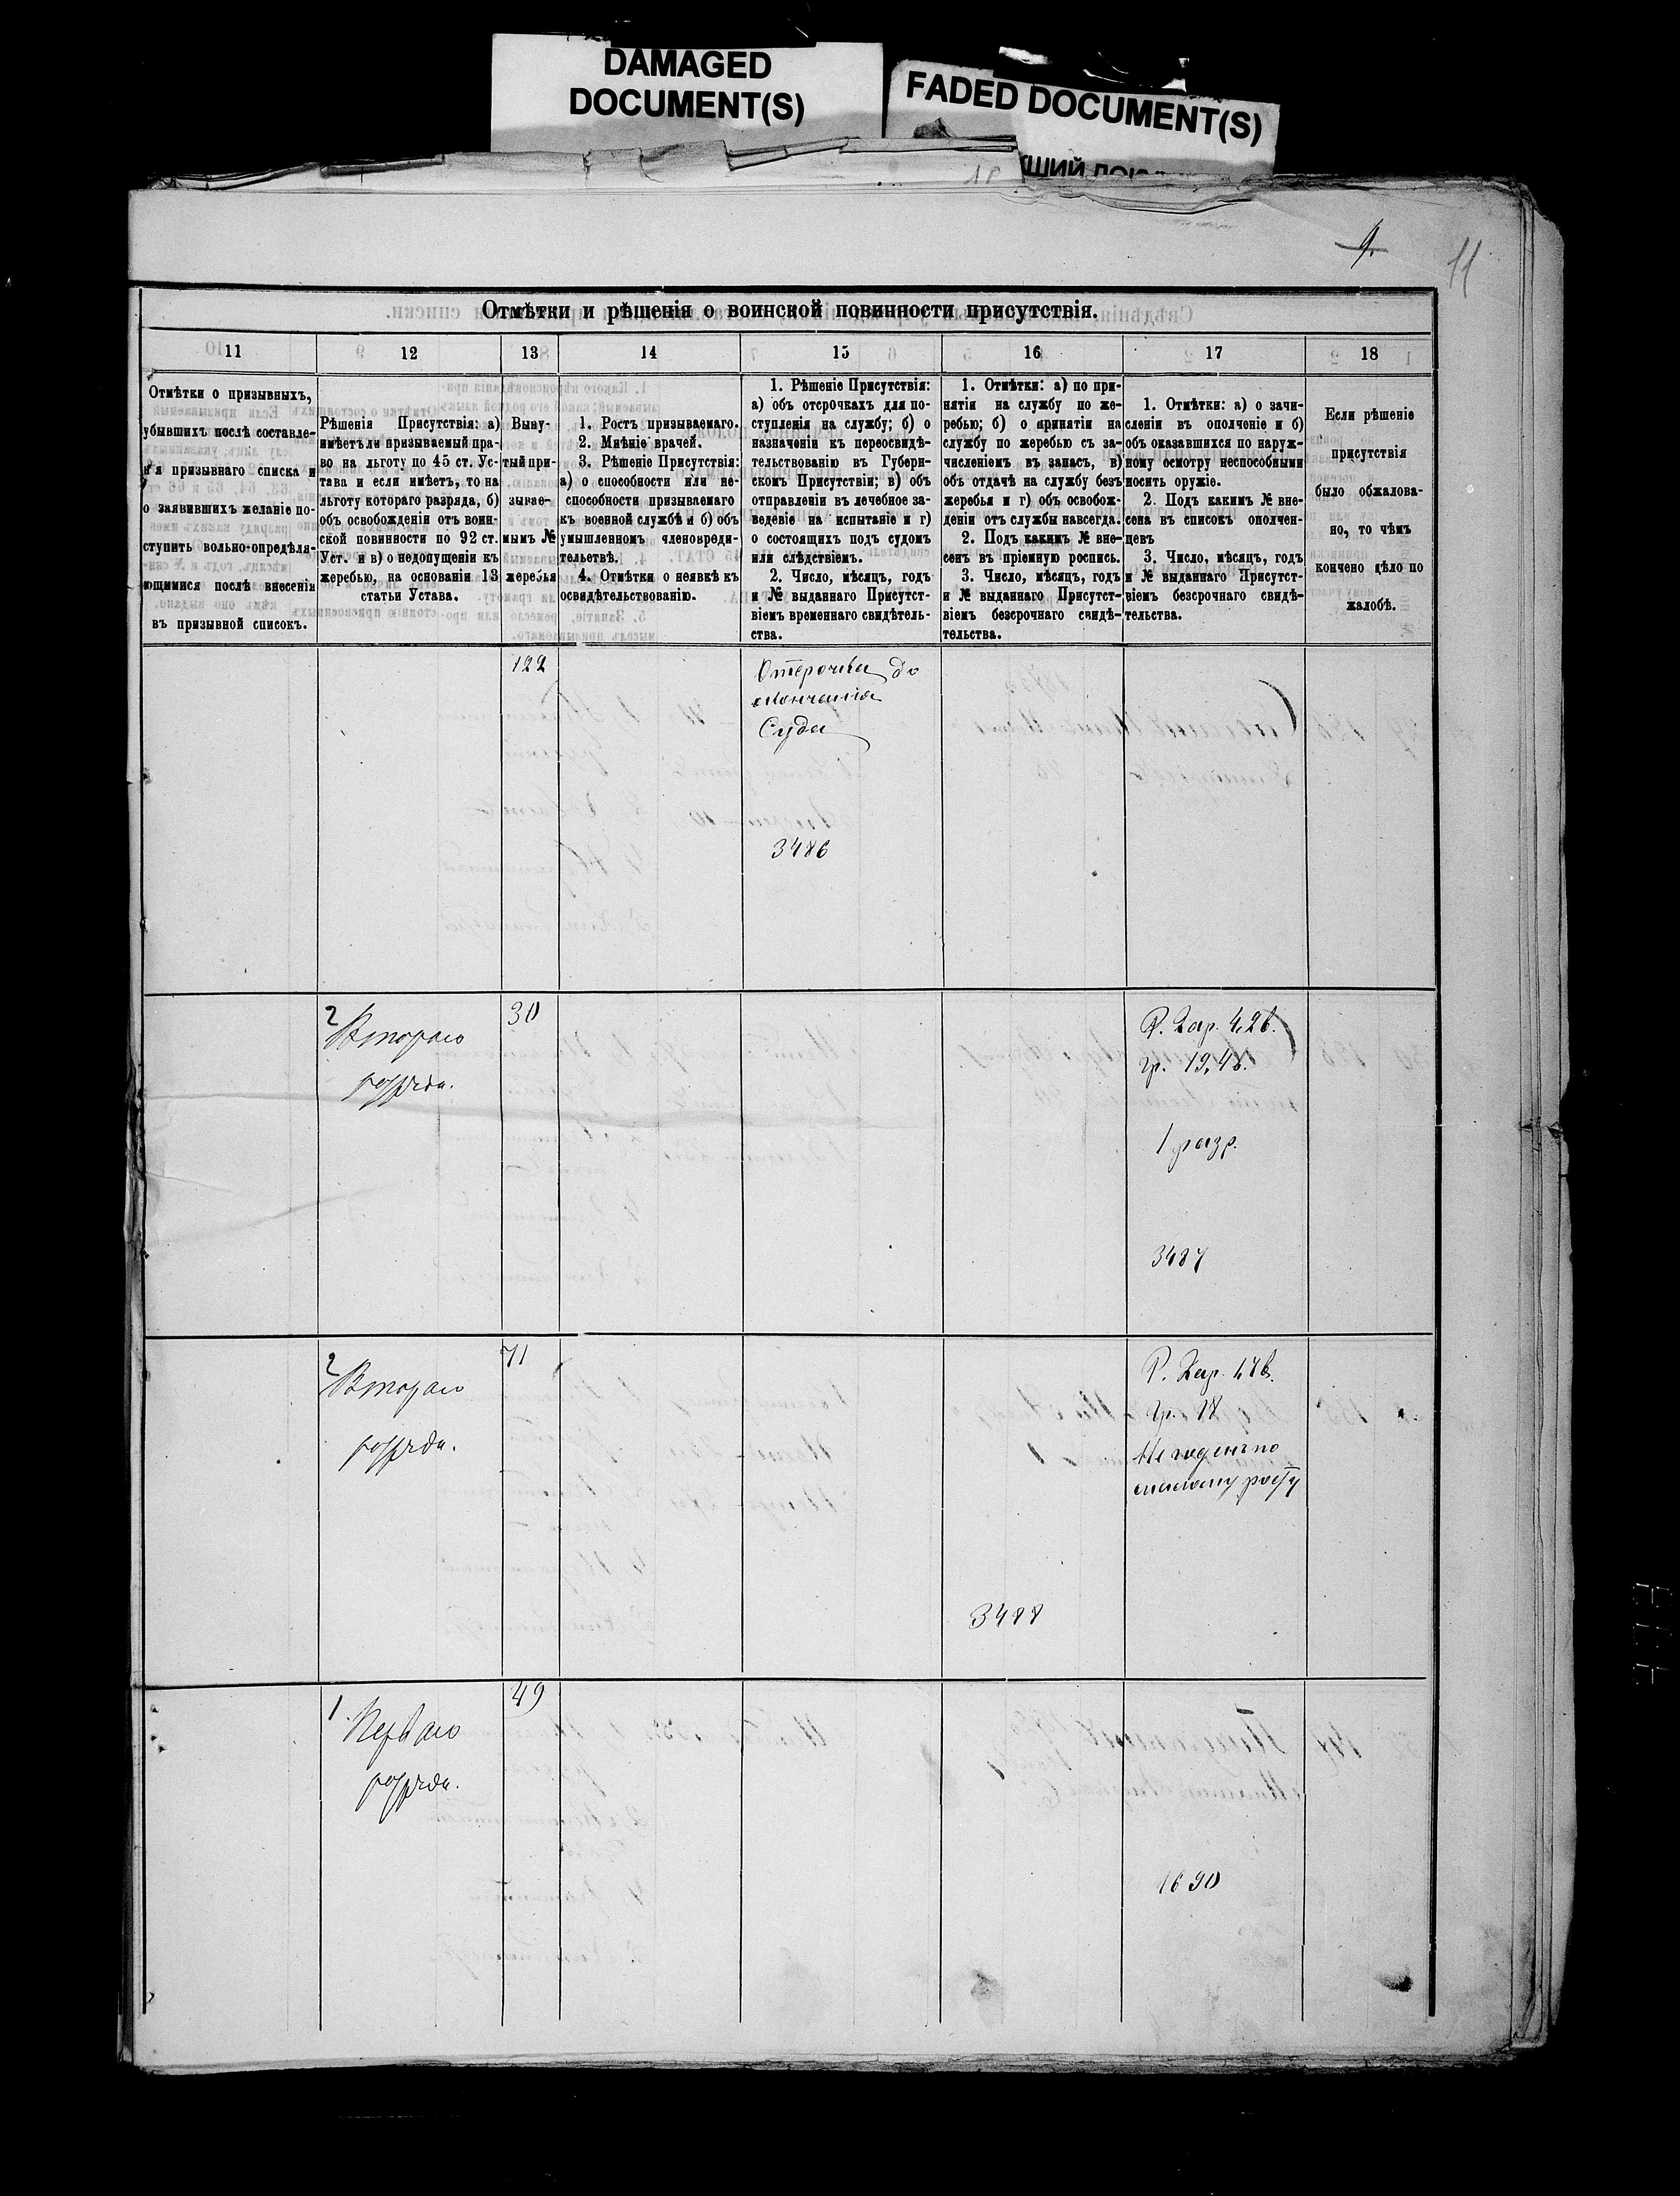 DAMAGED
DOCUMENT(S)
FADED DOCUMENT(S)
18
9.
11
Отмѣтки и рѣшенія о воинской повинности присутствія.
11
12
13
14
15
16
17
18
Отмѣтки о призывныхъ,
убывшихъ послѣ составле-
н'я призывнаго списка и
о заявившихъ желаніе по-
ступить вольно-опредѣля-
ющимися послѣ внесенія
въ призывной списокъ.
Рѣшенія Присутствія: а)
имѣетъ ли призываемый пра-
во на льготу по 45 ст. Ус-
тава и если имѣетъ, то на
льготу котораго разряда, б)
объ освобожденіи отъ воин-
ской повинности по 92 ст.
Уст. и в) о недопущеніи къ
жеребью, на основаніи 13
статьи Устава.
Выну-
тый при-
зывае-
мымъ №
жеребья
1. Ростъ призываемаго.
2. Мнѣніе врачей.
3. Рѣшеніе Присутствія:
а) о способности или не-
способности призываемаго
къ военной службѣ и б) объ
умышленномъ членовреди-
тельствѣ.
4. Отмѣтки о неявкѣ къ
освидѣтельствованію.
1. Рѣшеніе Присутствія:
а) объ отсрочкахъ для по-
ступленія на службу; б) о
назначеніи къ переосвидѣ-
тельствованію въ Губерн-
скомъ Присутствіи; в) объ
отправленіи въ лечебное за-
веденіе на испытаніе и г)
о состоящихъ подъ судомъ
или слѣдствіемъ.
2. Число, мѣсяцъ, годъ
и № выданнаго Присутст-
віемъ временнаго свидѣтель-
ства.
1. Отмѣтки: а) по при-
нятіи на службу по же-
ребью; б) о принятіи на
службу по жеребью съ за-
численіемъ въ запасъ, в)
объ отдачѣ на службу безъ
жеребья и г) объ освобож-
деніи отъ службы навсегда.
2. Подъ какимъ № вне-
сенъ въ пріемную роспись.
3. Число, мѣсяцъ, годъ
и № выданнаго Присутст-
віемъ безсрочнаго свидѣ-
тельства.
1. Отмѣтки: а) о зачи-
сленіи въ ополченіе и б)
объ оказавшихся по наруж-
ному осмотру неспособными
носить оружіе.
2. Подъ какимъ № вне-
сена въ списокъ ополчен-
цевъ
3. Число, мѣсяцъ, годъ
и № выданнаго Присутст-
віемъ безсрочнаго свидѣ-
тельства.
Если рѣшеніе
присутствія
было обжалова-
но, то чѣмъ
кончено дѣло по
жалобѣ.
122
Отсрочка до
окончанія
Суда
3486
2
Втораго
разряда.
30
1 разр.
3487
2
Втораго
разряда.
71
гр. 18
Не годенъ по
малому росту
3488
1
Перваго
разряда.
49
1690